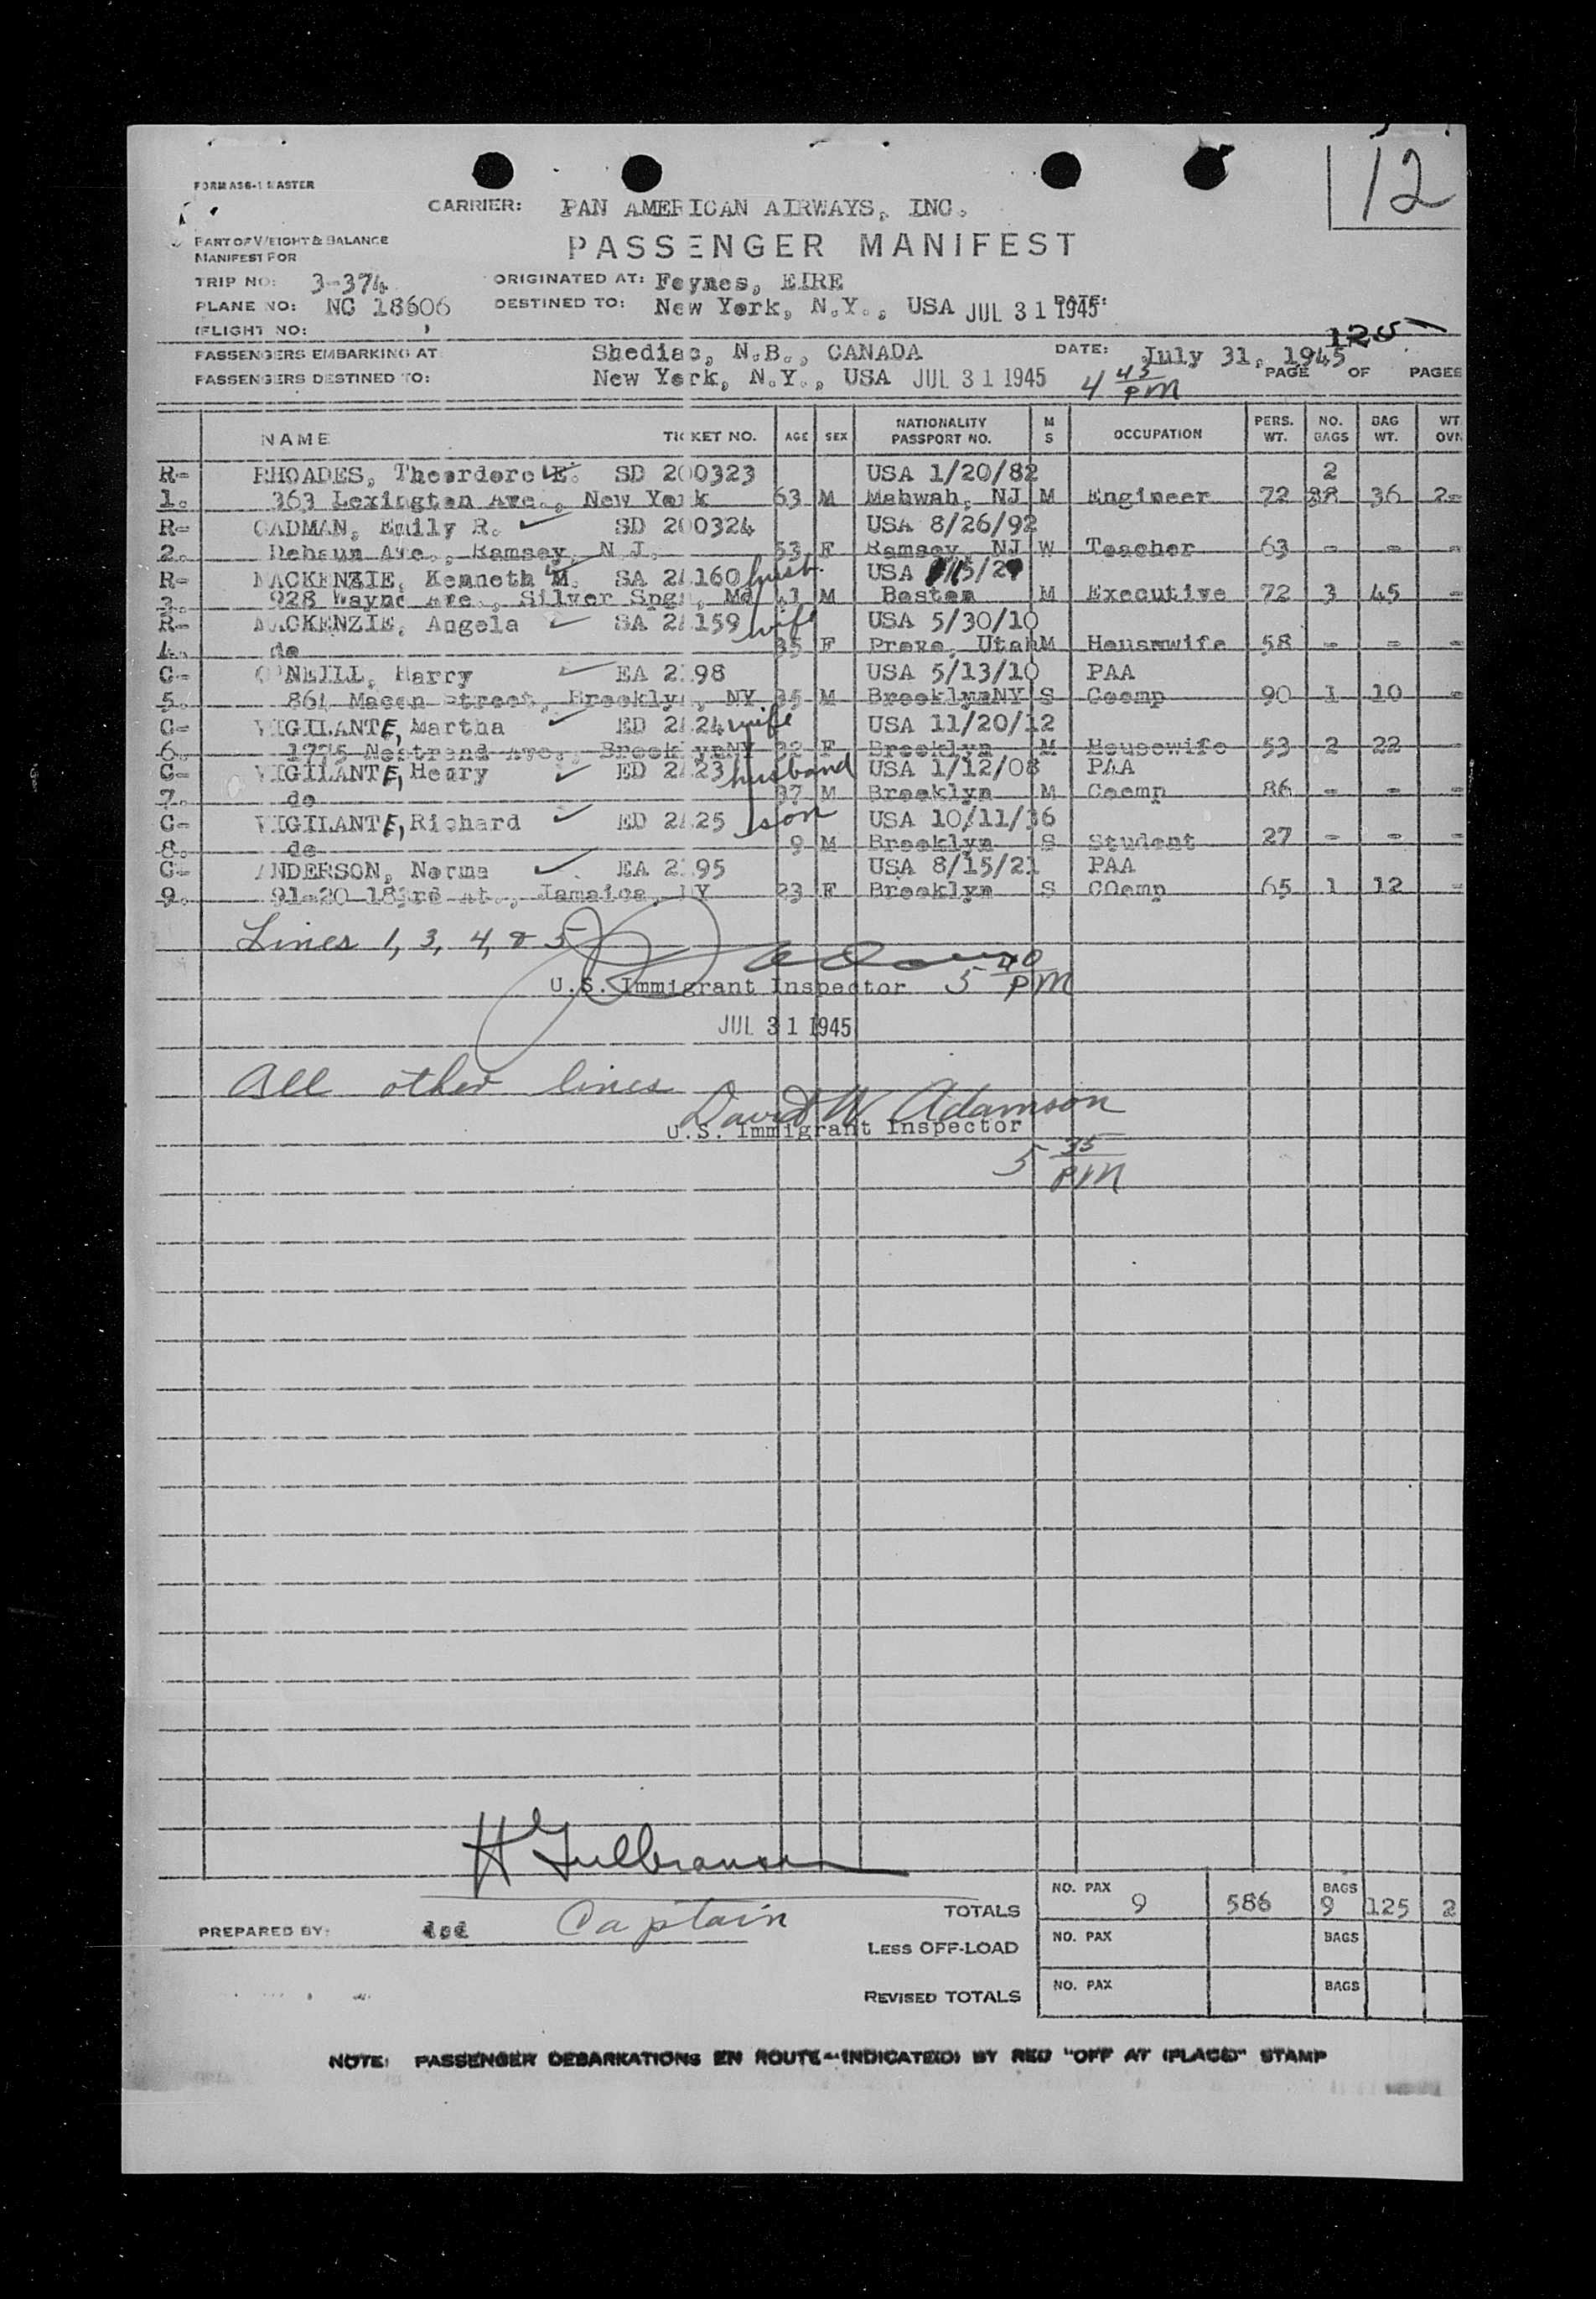 12
FORM A36-1 MASTER
CARRIER: PAN AMERICAN AIRWAYS, INC.
PART OF WEIGHT & BALANCE
MANIFEST FOR
PASSENGER MANIFEST
TRIP NO: 3-374 ORIGINATED AT: Foynes, EIRE
PLANE NO: NC 18606 DESTINED TO: New York, N.Y., USA JUL 31 1945 DATE:
(FLIGHT NO: )
PASSENGERS EMBARKING AT Shediac, N.B., CANADA DATE: July 31, 1945
PASSENGERS DESTINED TO: New York, N.Y., USA JUL 31 1945 4 43 PM PAGE OF PAGES
NAME TICKET NO. AGE SEX NATIONALITY PASSPORT NO. M S OCCUPATION PERS. WT. NO. BAGS BAG WT. WT OVR
R- RHOADES, Theordore E. SD 200323 USA 1/20/82 2
1. 363 Lexington Ave., New York 63 M Mahwah, NJ M Engineer 72 36 2-
R- CADMAN, Emily R. SD 200324 USA 8/26/92
2. Dehaun Ave., Ramsey, N.J. 53 F Ramsey, NJ W Teacher 63 - - -
R- MACKENZIE, Kenneth M. SA 24160 husb. USA
3. 928 Wayne Ave., Silver Spg., Md 41 M Boston M Executive 72 3 45 -
R- MACKENZIE, Angela SA 24159 wife USA 5/30/10
4. do 35 F Provo, Utah M Housewife 58 - - -
C- O'NEILL, Harry EA 2198 USA 5/13/10 PAA
5. 864 Macon Street, Brooklyn, NY 35 M Brooklyn NY S Coemp 90 1 10 -
C- VIGILANTE, Martha ED 2424 wife USA 11/20/12
6. 1775 Nostrand Ave., Brooklyn NY 32 F Brooklyn M Housewife 53 2 22 -
C- VIGILANTE, Henry ED 2423 husband USA 1/12/08 PAA
7. do 37 M Brooklyn M Coemp 86 - - -
C- VIGILANTE, Richard ED 2425 son USA 10/11/36
8. do 9 M Brooklyn S Student 27 - - -
C- ANDERSON, Norma EA 2195 USA 8/15/21 PAA
9. 91-20 183rd St., Jamaica, NY 23 F Brooklyn S COemp 65 1 12 -
Lines 1, 3, 4, & 5
U.S. Immigrant Inspector 5 40 PM
JUL 31 1945
All other lines
David W. Adamson
U.S. Immigrant Inspector
5 35 PM
H Gulbransen
Captain
PREPARED BY:
TOTALS NO. PAX 9 586 BAGS 9 125 2
LESS OFF-LOAD NO. PAX BAGS
REVISED TOTALS NO. PAX BAGS
NOTE: PASSENGER DEBARKATIONS EN ROUTE-INDICATE(D) BY RED "OFF AT (PLACE)" STAMP